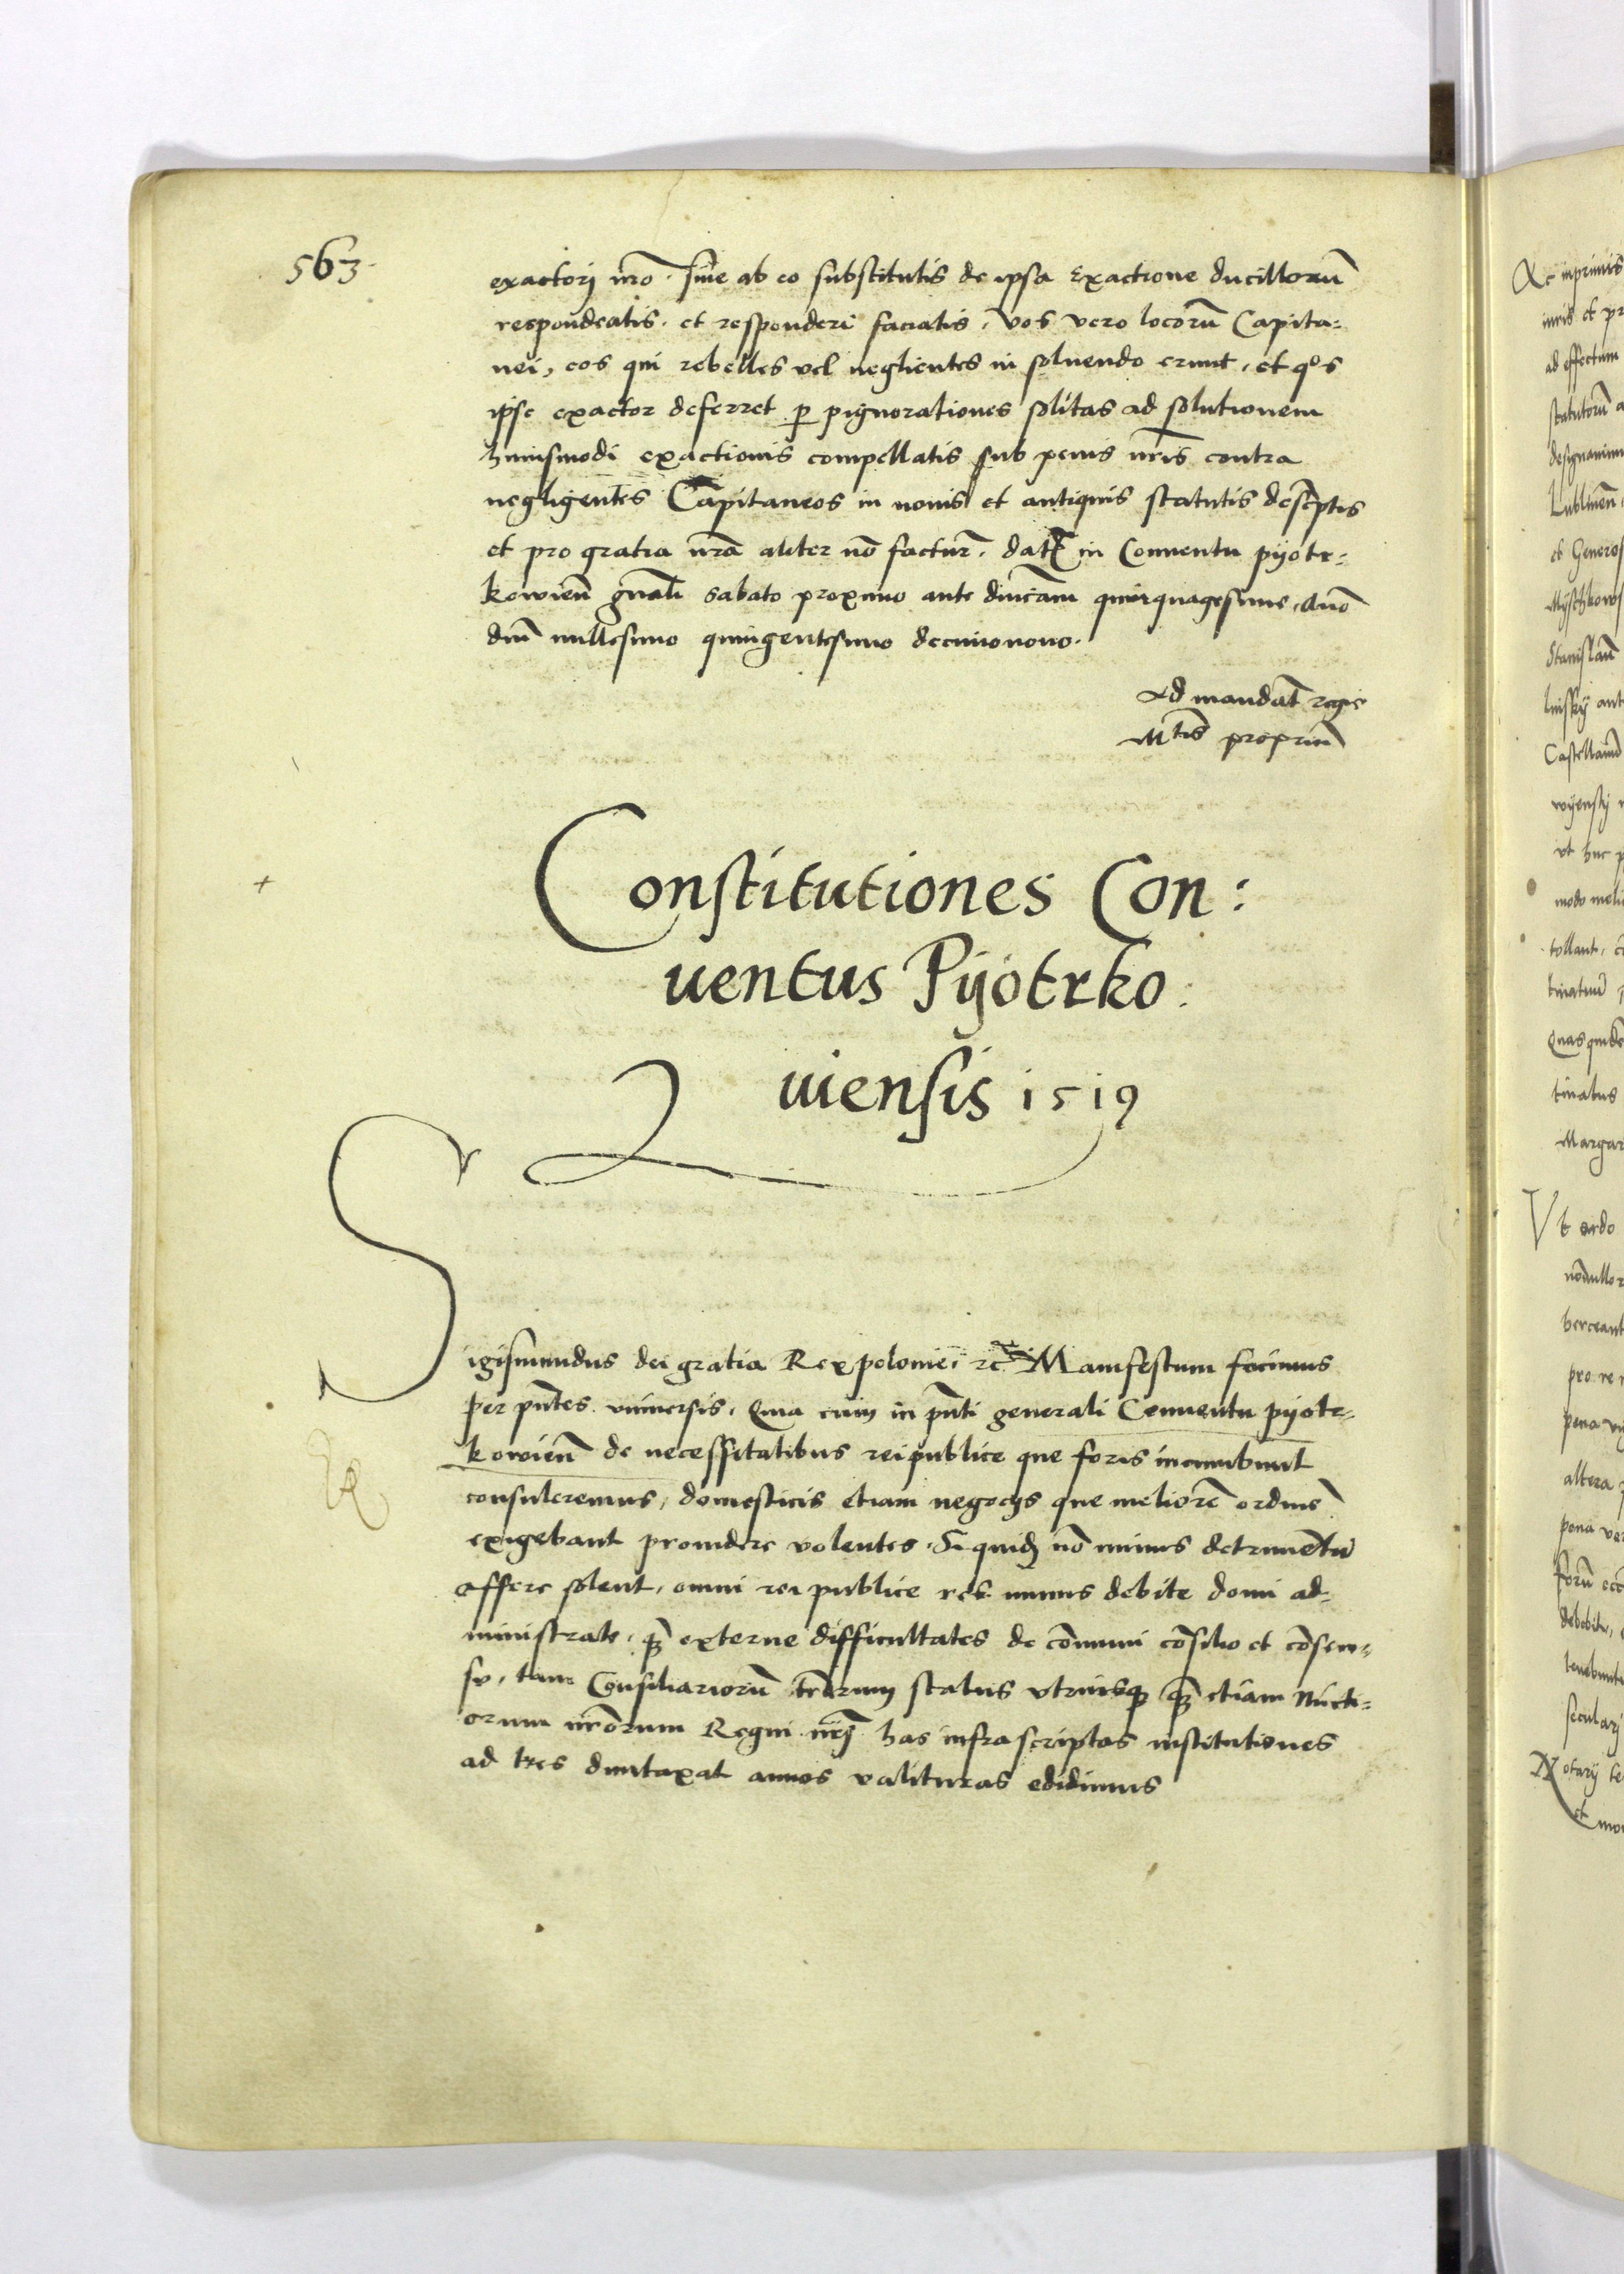 563
exactorj nr̄o. siue ab eo substitutis de ipsa Exactione ducillorū
respondeatis. et responderi faciatis, vos vero locorū Capita=
nei, eos qui rebelles vel neglientes in soluendo erunt, et qos
ipse exactor deferret p̲ pignorationes solitas ad solutionem
huiusmodi exactionis compellatis sub penis nr̄is contra
negligentes Capitaneos in nouis et antiquis statutis descptis
et pro gratia nr̄a aliter nō factur̄. dat in Conuentu pyotr=
kowien̄ gn̄ali sabato proximo ante dn̄icam quinquagesime, Anō
dn̄i millesimo quingentesimo decimonono.
Ad mandat̄ regie
Mtis propriū
Constitutiones Con:
uentus Pyotrko:
uiensis 1519
Sigismundus dei gratia Rex polonie, rc̄ Manifestum facimus
per pn̄tes vniuersis. Quia cum in pn̄ti generali Conuentu pyotr=
kowien̄ de necessitatibus reipublice que foris incumbunt
consuleremus, domesticis etiam negocijs que meliorē ordinē
exigebant prouidere volentes. Si quidem nō minus detrimentū
affere solent, omni rei publice res minus debite domi ad=
ministrate, qm̄ externe difficultates de cōmuni cōsilio et cōsen=
su, tam Consiliariorū status vtriusq qm̄ etiam Nucti=
orum terrarum Regni nr̄j has infrascriptas institutiones
ad tres duntaxat annos valituras edidimus
Ac inprimis
iuris et pr
ad effectum
statutorū a
designauimus
Lublinen̄
et Generos
Myschkows
Stanislaū
linssky ant
Castellanū
wyensky
vt huc p
modo meli
tollant, c
Quas quidē
tinatus
Margar
Vt ordo
nōnullor
berceant
pro re
pena
altera
pena ve
forū
debebit,
tenebuntu
secularj
Notarij te
et mo